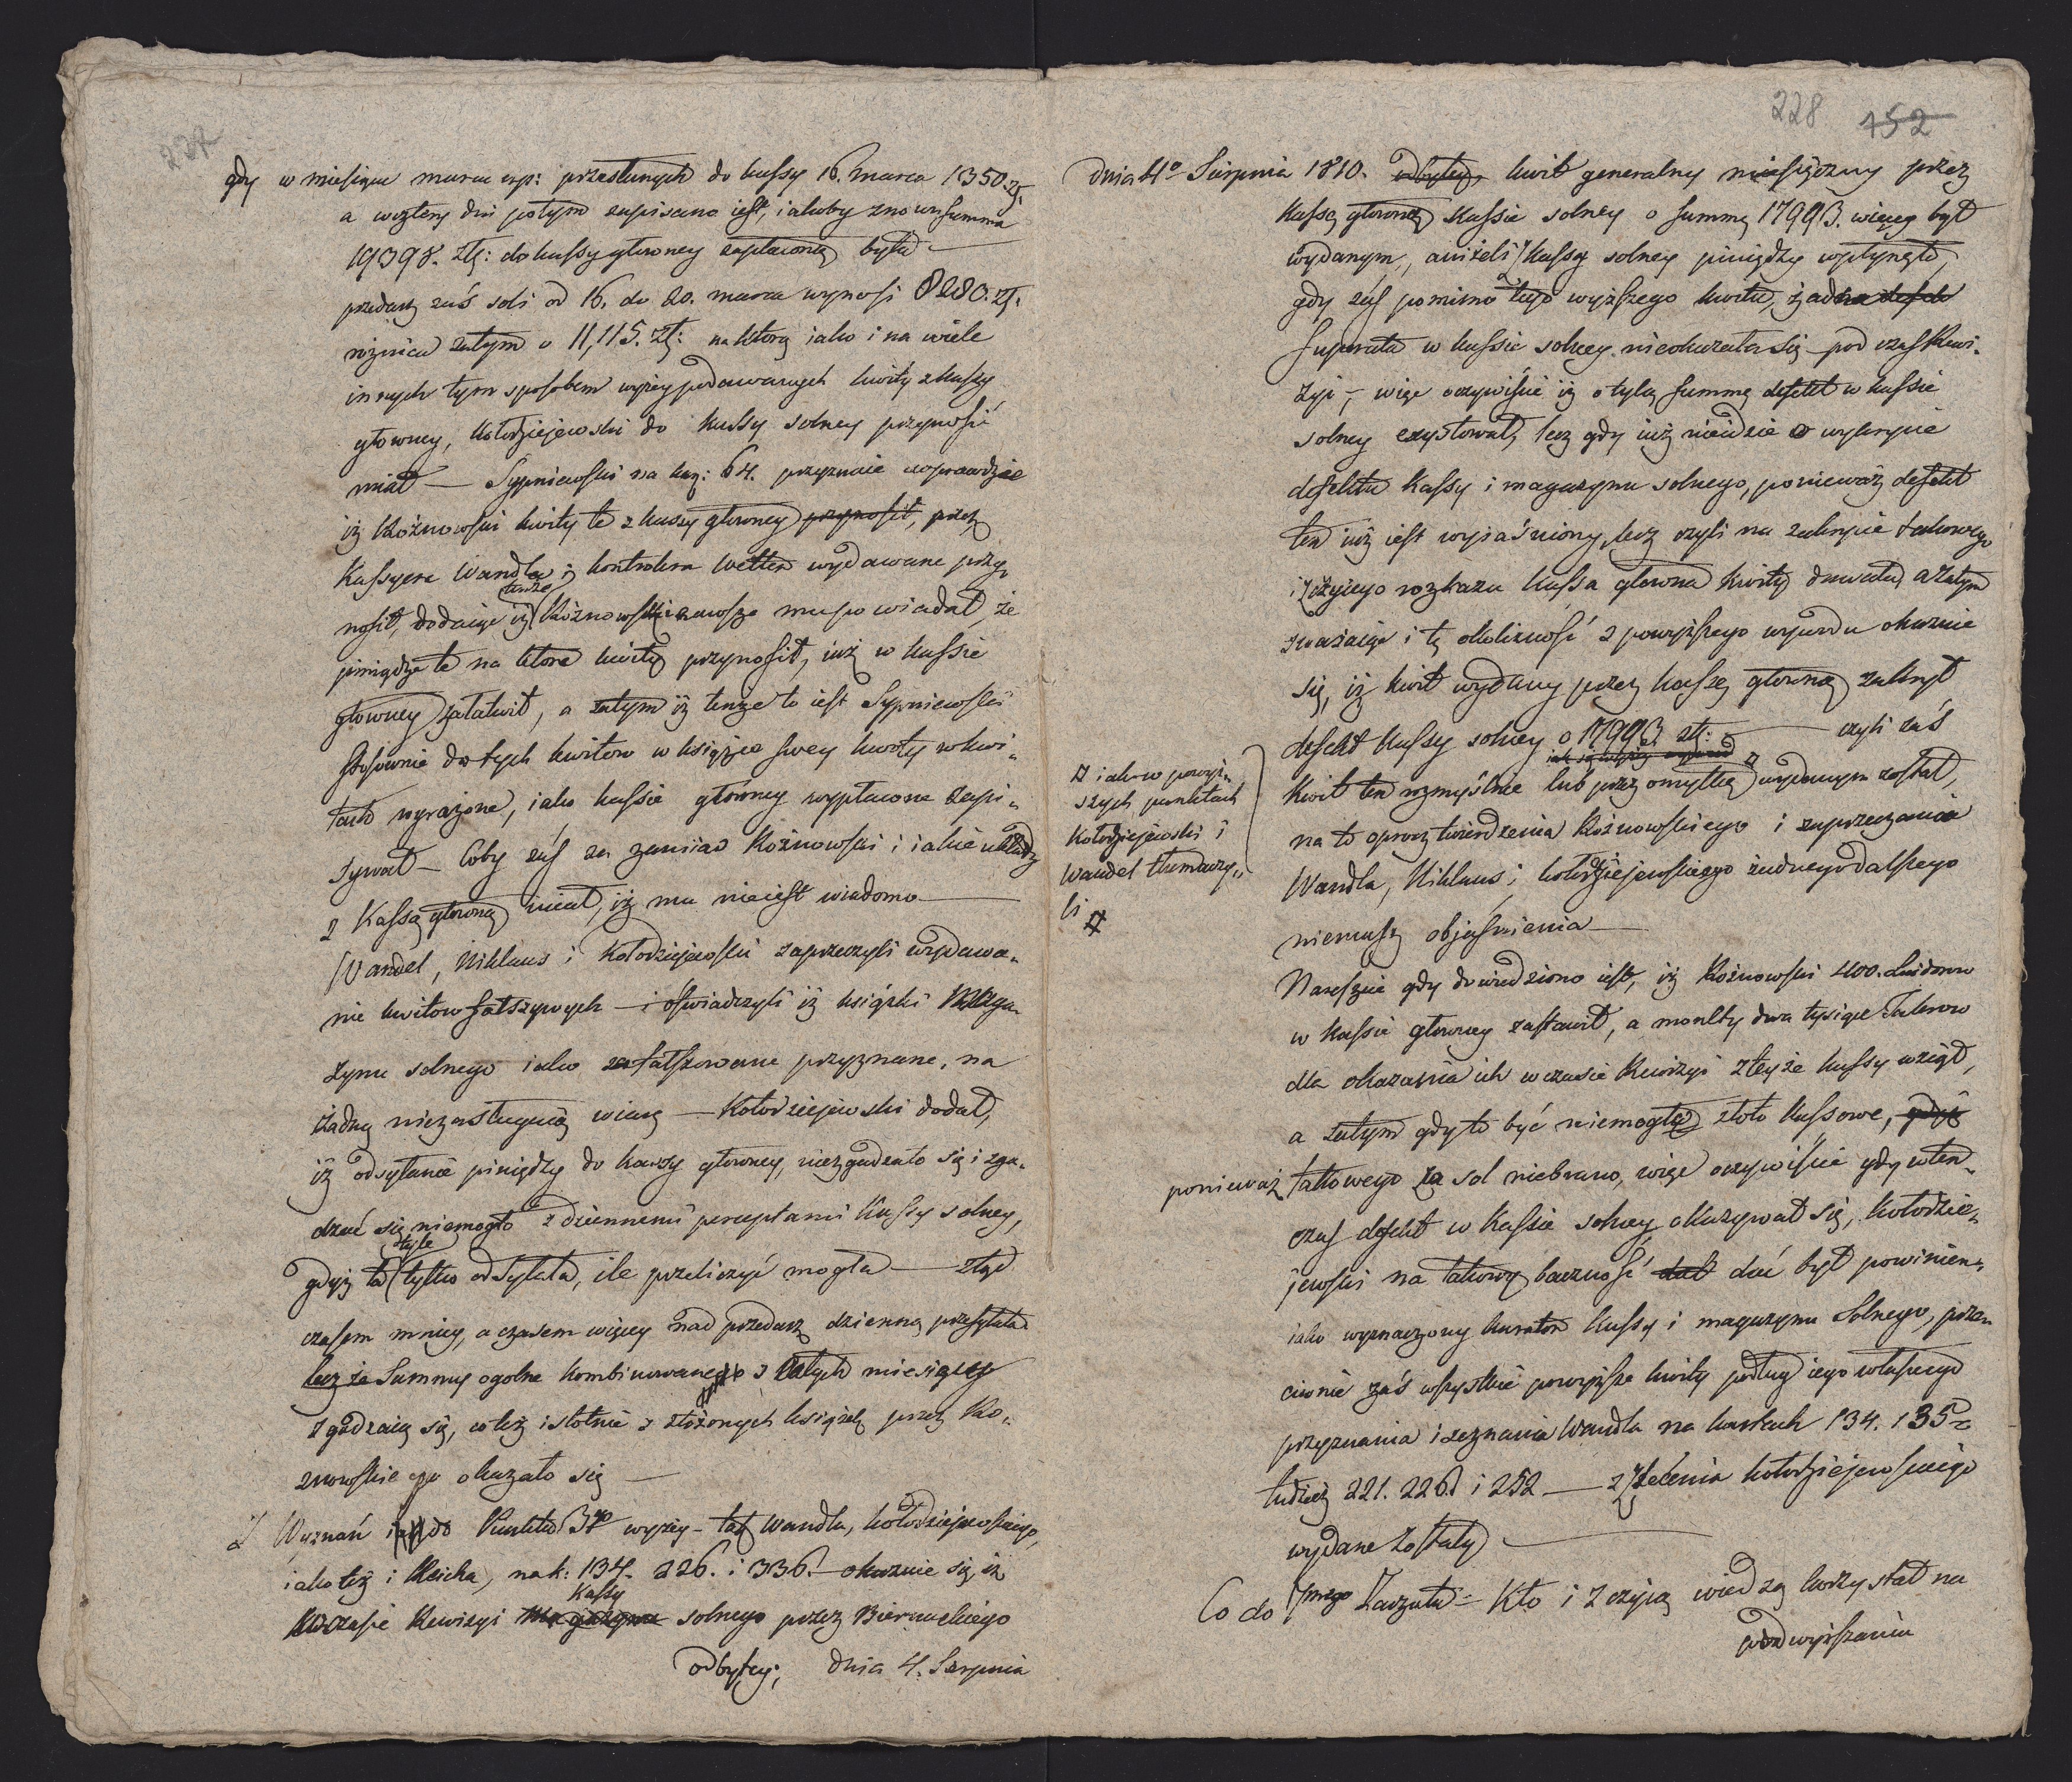 227
gdy w miesiącu marcu np: przesłanych do kassy 16. marca 1350. zł.
a wcztery dni potym zapisano iest, iakoby znowu summa
19398. złł: do kassy głowney zapłaconą była —
przedaż zaś soli od 16. do 20. marca wynosi 8280. zł.
rożnica zatym o 11,115. zł: na ktorą iako i na wiele
innych tym sposobem wyżey podawanych kwity z kassy
głowney, Kołodziejewski do kassy solney przynosić
miał — Sypniewski na kar: 64. przyznaie wprawdzie
iż Kożnowski kwity te z kassy głowney przynosił, przez
Kassyera Wandla i kontrolera Wetter wydawane przy-
nosił, dodaiąc iż tenże Kożnowski zawsze mu powiadał, że
pieniądze te na ktore kwity przynosił, iuż w kassie
głowney załatwił, a zatym iż tenże to iest Sypniewski
stosownie do tych kwitow w książce swey kwoty w kwi-
tach wyrażone, iako kassie głowney wypłacone zapi-
sywał — Coby zaś za zamiar Kożnowski i iakie układy
z Kassą głowną miał, iż mu nieiest wiadomo —
Wandel, Niklaus i Kołodziejewski zaprzeczyli wydawa-
nie kwitow fałszywych — i oświadczyli iż książki Maga-
zynu solnego iako za fałszowane przyznane, na
żadną niezasługuią wiarę — Kołodziejewski dodał,
iż odsyłanie pieniędzy do kassy głowney, niezgadzało się i zga-
dzać się niemogło z dziennemi perceptami Kassy solney,
gdyż ta tyle tylko odsyłała, ile przeliczyć mogła — ztąd
czasem mniey, a czasem więcey nad przedaż dzienną przesyłała
lecz że Summy ogolne kombinowane z całych miesięcy
zgadzaią się, co też istotnie z złożonych książek przez Ko-
żnowskiego okazało się —
Z Wyznań do Punktu 3go wyżey — tak Wandla, Kołodziejewskiego,
iako też i Reicha, na k: 134. 226. i 336. — okazuie się, iż
w czasie Rewizyi Magazynu Kassy solnego przez Biernackiego
odbytey, dnia 4. Sierpnia
228 152
dnia 4o Sierpnia 1810. odbytey, kwit generalny miesięczny przez
Kassę głowną Kassie solney o summę 17993. więcey był
wydanym, aniżeli z kassy solney pieniędzy wpłynęło,
gdy zaś pomimo tego wyższego kwitu, żadna
superata w kassie solney nieokazała się pod czas Rewi-
zyi —, więc oczywiście iż o tylą summę defekt w kassie
solney exystował, lecz gdy iuż nieidzie o wykrycie
defektu Kassy i magazynu solnego, ponieważ defekt
ten iuż iest wyiaśniony, lecz czyli na zakrycie takowego
i z czyiego rozkazu kassa głowna kwity dawała, a zatym
zważaiąc i tę okoliczność z powyższego wywodu okazuie
się, iż kwit wydany przez kassę głowną zakrył
defekt kassy solney o 17993 zł: — czyli zaś
kwit ten rozmyślnie lub przez omyłkę # wydanym został,
# iako w powyż-
szych punktach
Kołodziejewski i
Wandel tłumaczy-
li #
na to oprocz twierdzenia Kożnowskiego i zaprzeczania
Wandla, Niklaus i Kołodziejewskiego żadnego dalszego
niemasz objaśnienia —
Nareszcie gdy dowiedziono iest, iż Kożnowski 400. Luidorow
w kassie głowney zastawił, a monety dwa tysiące Talarow
dla okazania ich w czasie Rewizyi z teyże kassy wziął,
a zatym gdy to być niemogło złoto kassowe, gdyż
ponieważ takowego za sol niebrano, więc oczywiście gdy wten-
czas defekt w kassie solney okazywał się, Kołodzie-
jewski na takowy baczność dać był powinien,
iako wyznaczony kurator kassy i magazynu Solnego, prze-
ciwnie zaś wszystkie powyższe kwity podług iego własnego
przyznania i zeznania Wandla na kartach 134. 135
tudzież 221. 226. i 252 — z zlecenia Kołodziejewskiego
wydane zostały —
Co do 7mego Zarzutu — Kto i z czyią wiedzą korzystał na
podwyższaniu